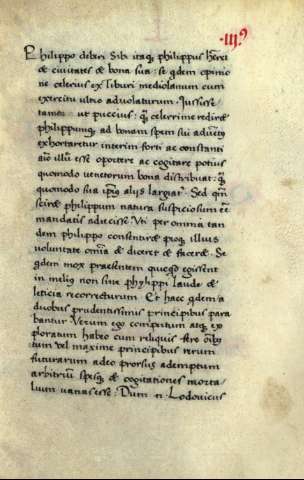 .III.
Philippo deberi Sibi itaq philippus heret
de civitate de bona sua: set qdem opinio
ne celerius ex liburi mediolanum cum
exercitu ultro advolaturum. Jussisse
tamen ut puccius: q celerrime redire
philippumq ad bonam spem sui adventus
exhortaretur interim forti ac constanti
animo illum esse oportere ac cogitare potius
quomodo venetorum bona distribuat: q
quomodo sua alijs largiat. Sed qm
scire philippum natura suspiciosum
mandatis adiecisse. Uti per omnia tan
dem philippo consentire proq illius
voluntate omnia diceret facere. Se
qdem mox praesentem quicqd egissent
in melius non sine phylippi laude &
leticia recorrecturum Et haec qdem a
duobus prudentissimis principibus para
bantur Verum ego compertum atq ex
ploratum habeo cum reliquis fere oibus
tum vel maxime principibus rerum
futurarum adeo prorsus ademptum
arbitrium spesq & cogitationes morta
lium vanas esse: Dum n Lodovicus